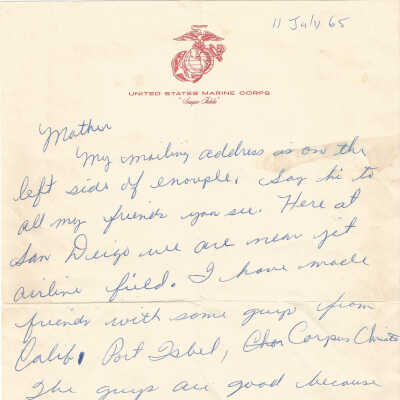 11 July 65
UNITED STATES MARINE CORPS
"Semper Fidelis"
Mother
My mailing address is on the
left side of enouple. Say hi to
all my friends you see. Here at
San Deigo we are near jet
airline field. I have made
friends with some guys from
Calif, Port Isbel, Chor Corpus Christi
The guys are good because